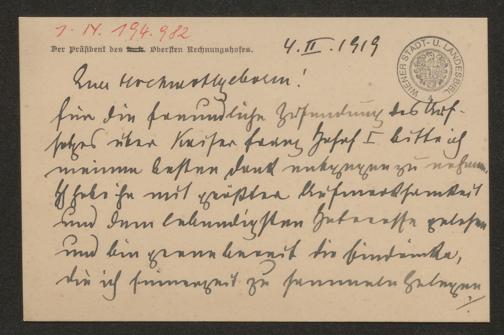 I. N. 194.982
Der Präsident des Obersten Rechnungshofes.
4. II. 1919
WIENER STADT- U. LANDESBIBL
Euer Hochwohlgeboren!
Für die freundliche Zusendung des Auf-
satzes über Kaiser Franz Josef I bitte ich
meinen besten Dank entgegen zu nehmen.
Ich habe ihn mit größter Aufmerksamkeit
und dem lebendigsten Interesse gelesen
und bin gerne bereit die Eindrücke,
die ich seinerzeit zu sammeln Gelegen